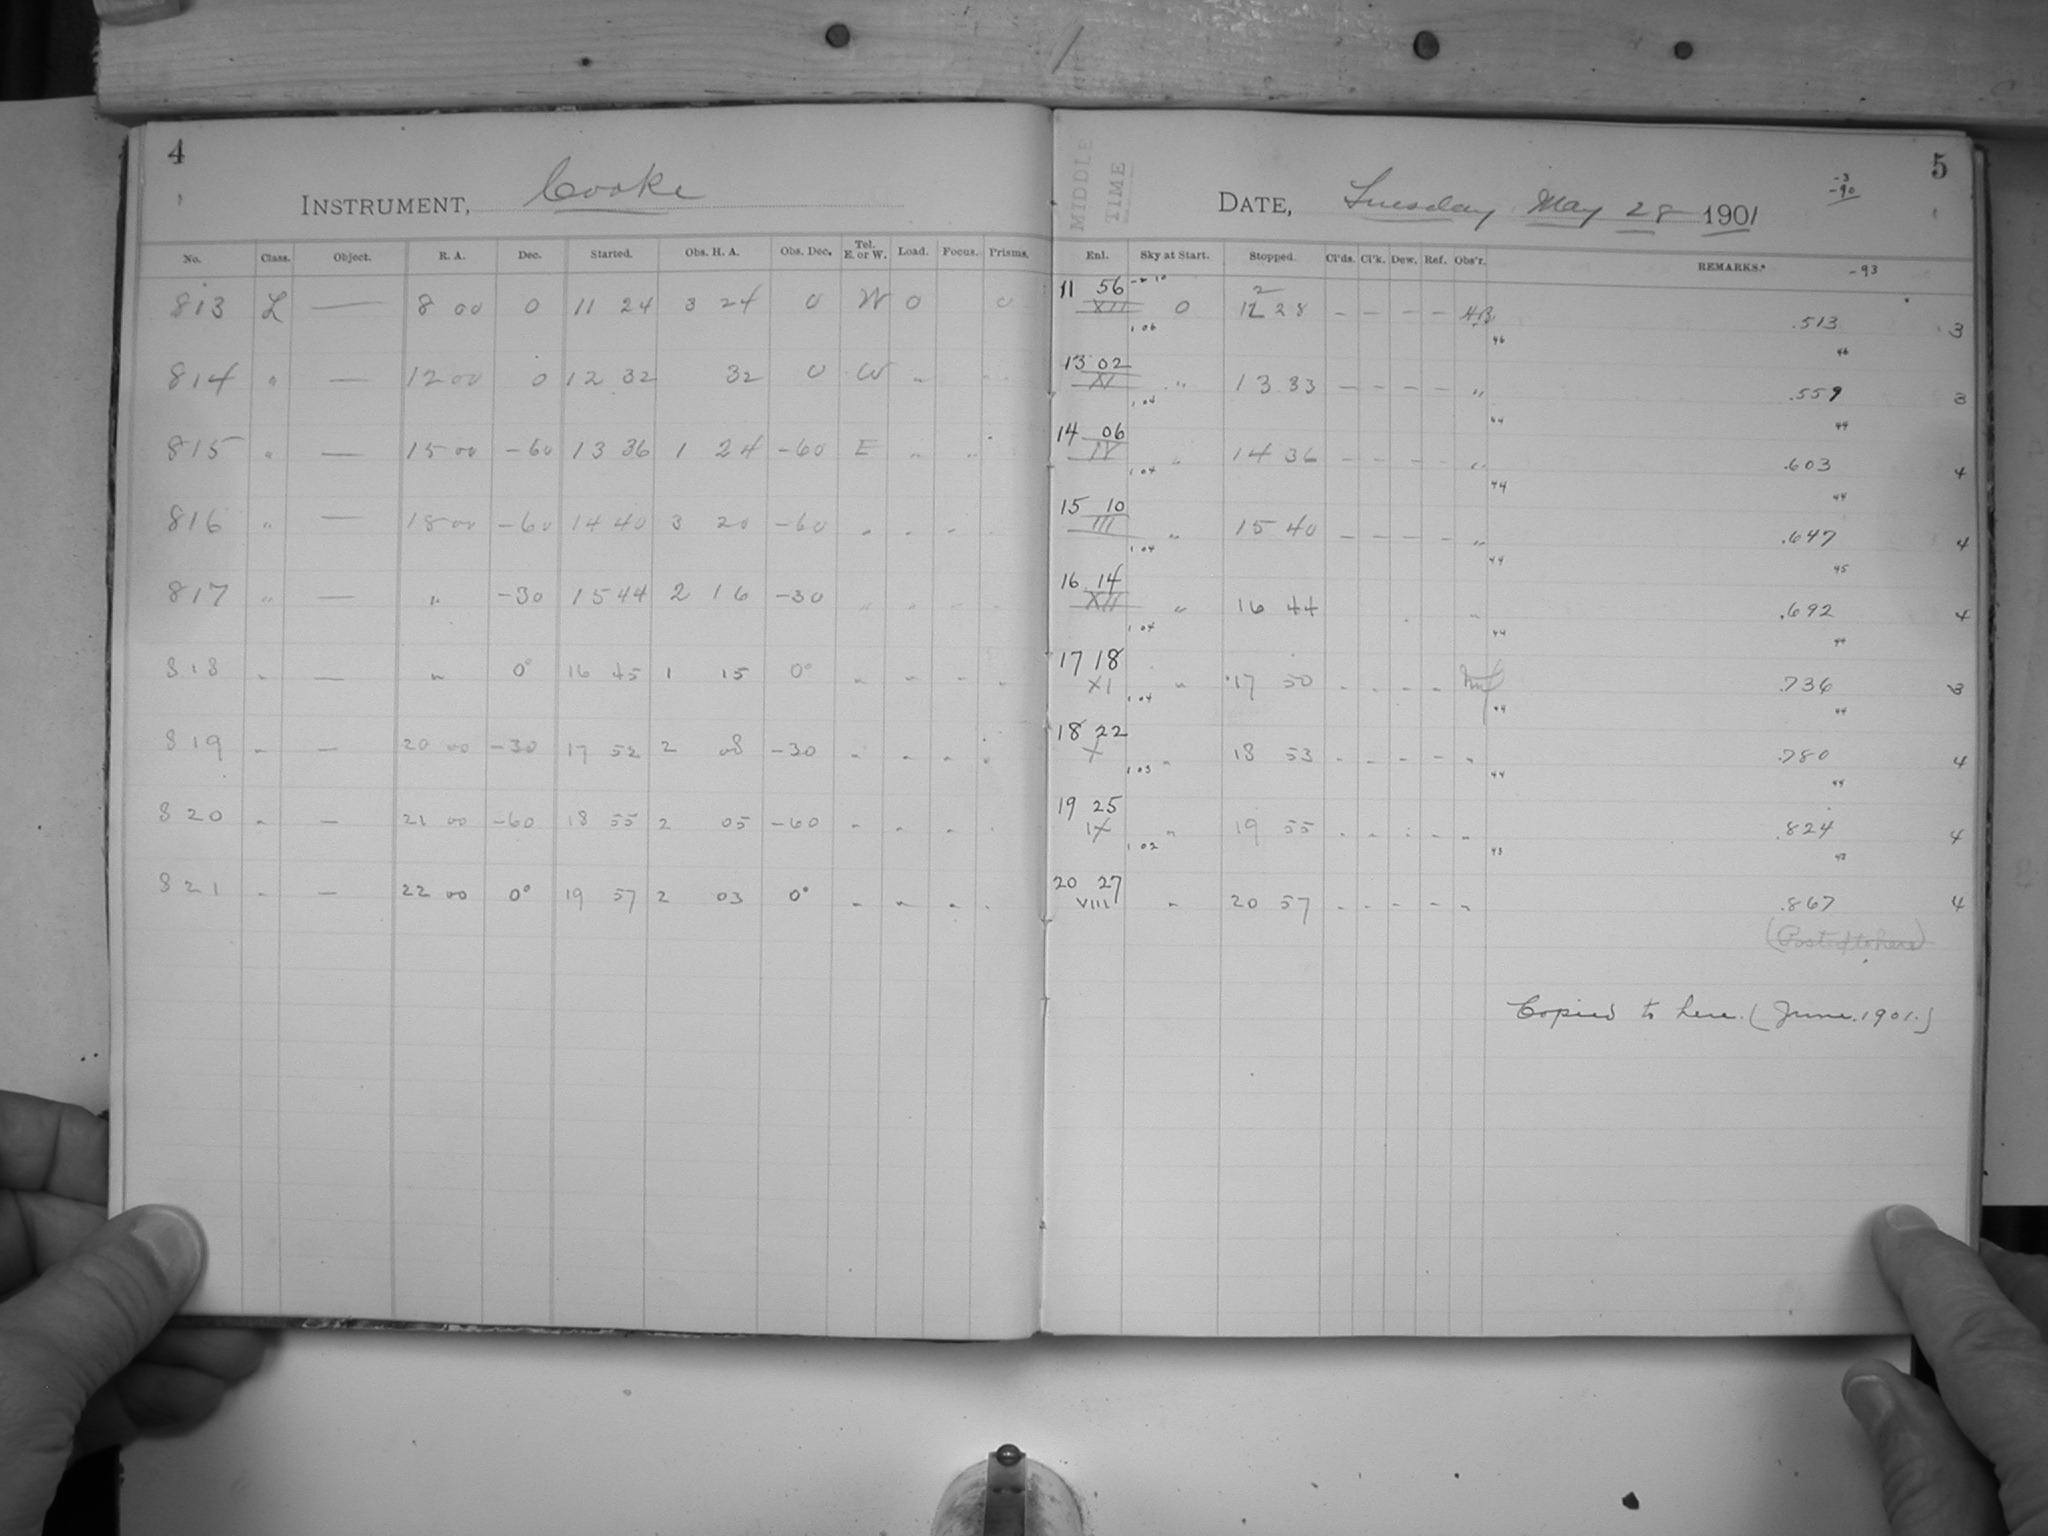 4
INSTRUMENT, Cooke
No. Class. Object. R. A. Dec. Started. Obs. H. A. Obs. Dec. Tel. E. or W. Load. Focus. Prisms.
813 L — 8 00 0 11 24 3 24 0 W 0 0
814 " — 12 00 0 12 32 32 0 W "
815 " — 15 00 -60 13 36 1 24 -60 E " "
816 " — 18 00 -60 14 40 3 20 -60 " " "
817 " — " -30 15 44 2 16 -30 " " " "
818 " — " 0° 16 45 1 15 0° " " " "
819 " — 20 00 -30 17 52 2 08 -30 " " " "
820 " — 21 00 -60 18 55 2 05 -60 " " " "
821 " — 22 00 0° 19 57 2 03 0° " " " "
MIDDLE TIME
5
-3
-90
DATE, Tuesday May 28 1901
Enl. Sky at Start. Stopped. Cl'ds. Cl'k. Dew. Ref. Obs'r. REMARKS. -93
11 56
XII 0 12 28 – – – – .513 3
1 06 46 46
13 02
XI " 13 33 – – – – " .559 3
1 04 44 44
14 06
IV " 14 36 – – – – " .603 4
1 04 44 44
15 10
III " 15 40 – – – – " .647 4
1 04 44 45
16 14
XII " 16 44 " .692 4
1 04 44 44
17 18
XI " 17 50 – – – – .736 3
1 04 44 44
18 22
X " 18 53 – – – – " .780 4
1 03 44 44
19 25
IX " 19 55 – – – – " .824 4
1 02 43 43
20 27
VIII " 20 57 – – – – " .867 4
Copied to here. (June. 1901.)